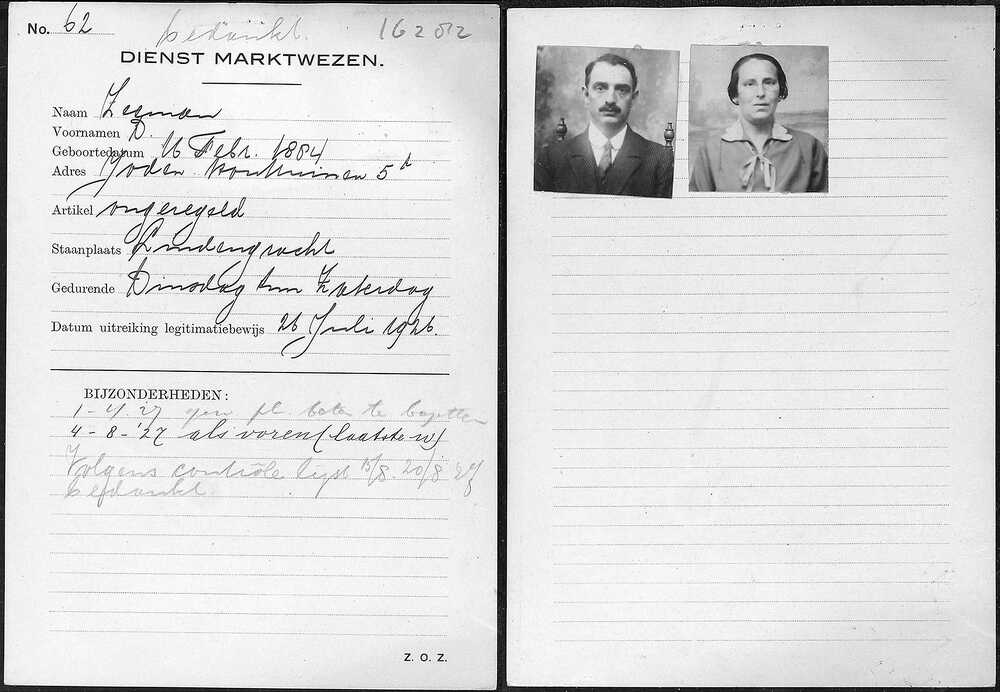 No. 62 bedankt. 16202
DIENST MARKTWEZEN.
Naam Zeeman
Voornamen D.
Geboortedatum 16 Febr. 1884
Adres Joden Houttuinen 5
Artikel ongeregeld
Staanplaats Lindengracht
Gedurende Dinsdag t/m Zaterdag
Datum uitreiking legitimatiebewijs 26 Juli 1926.
BIJZONDERHEDEN:
1-4.27 pl. beter te bezetten
4-8-'27 als voren (laatste w)
Volgens contrôle lijst 15/8. 20/8 27
bedankt
Z. O. Z.